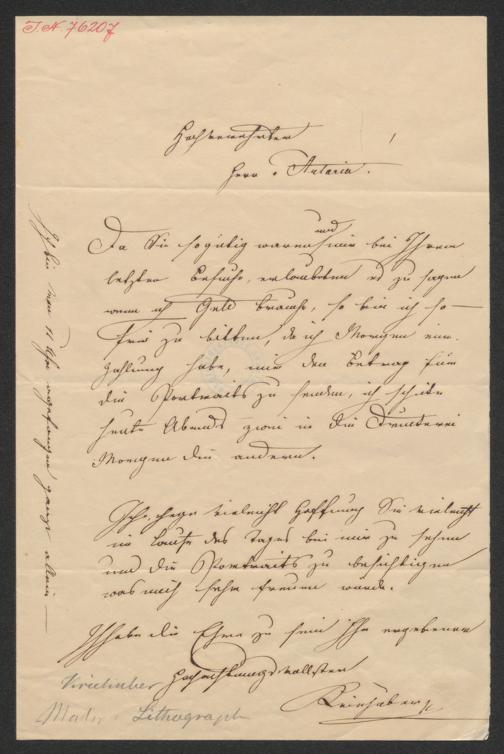 I.N. 76207
Hochverehrter
Herr v Artaria.
Da Sie so gütig waren und mir bei Ihrem
letzten Besuche, erlaubten es zu sagen
wenn ich Geld brauche, so bin ich so
frei zu bitten, da ich Morgen ein
Zahlung habe, mir den Betrag für
die Portraits zu senden, ich schicke
heute Abends zwei in die Druckerei
Morgen die andern.
Ich hege vielleicht Hoffnung Sie vielleicht
im Laufe des Tages bei mir zu sehen
und die Portraits zu besichtigen
was mich sehr freuen würde.
Ich habe die Ehre zu sein Ihr ergebener
Hochachtungsvollster
Kriehuber
Ich bin von 11 Uhr angefangen ganz allein
Kriehuber
Maler Lithograph